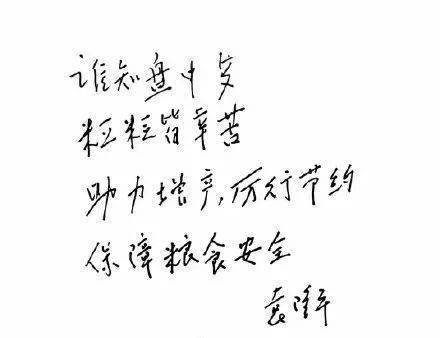 谁知盘中歺
粒粒皆辛苦
助力增产,厉行节约
保障粮食安全
袁隆平